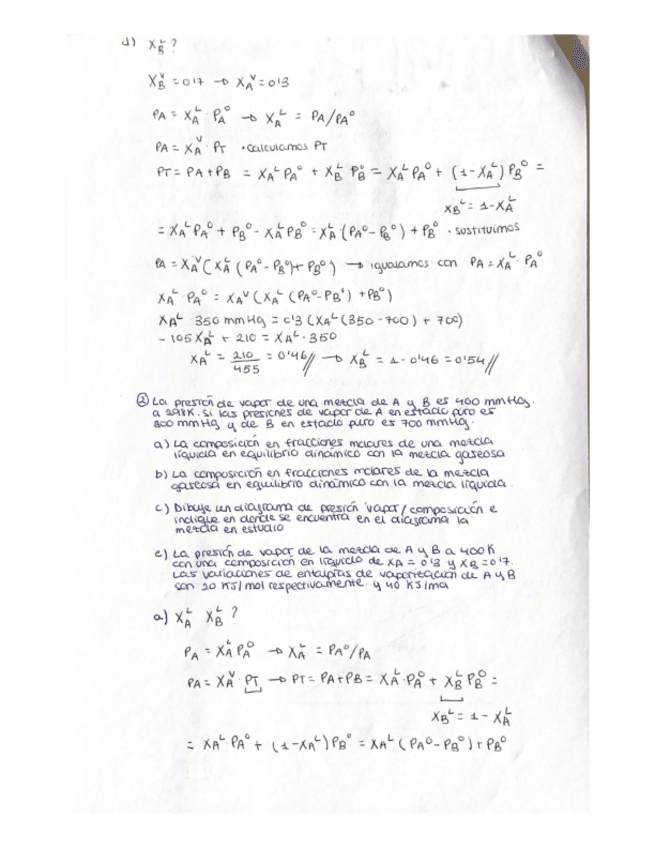 d) X_B^L ?
X_B^V = 0'7 → X_A^V = 0'3
PA = X_A^L · P_A^0 → X_A^L = PA/PA^0
PA = X_A^V · PT · calculamos PT
PT = PA + PB = X_A^L PA^0 + X_B^L P_B^0 = X_A^L PA^0 + (1-X_A^L) P_B^0 =
X_B^L = 1-X_A^L
= X_A^L PA^0 + P_B^0 - X_A^L P_B^0 = X_A^L · (PA^0 - P_B^0) + P_B^0 · sustituimos
PA = X_A^V (X_A^L (PA^0 - PB^0) + PB^0) → igualamos con PA = X_A^L · PA^0
X_A^L · PA^0 = X_A^V (X_A^L (PA^0 - PB^0) + PB^0)
X_A^L 350 mmHg = 0'3 (X_A^L (350 - 700) + 700)
- 105 X_A^L + 210 = X_A^L · 350
X_A^L = 210/455 = 0'46 // → X_B^L = 1 - 0'46 = 0'54 //
② La presión de vapor de una mezcla de A y B es 400 mmHg.
a 298K. si las presiones de vapor de A en estado puro es
300 mmHg y de B en estado puro es 700 mmHg.
a) La composición en fracciones molares de una mezcla
líquida en equilibrio dinámico con la mezcla gaseosa
b) La composición en fracciones molares de la mezcla
gaseosa en equilibrio dinámico con la mezcla líquida.
c) Dibuje un diagrama de presión vapor/composición e
indique en donde se encuentra en el diagrama la
mezcla en estudio
e) La presión de vapor de la mezcla de A y B a 400K
con una composición en líquido de XA = 0'3 y XB = 0'7.
Las variaciones de entalpías de vaporización de A y B
son 20 KJ/mol respectivamente y 40 KJ/mol
a) X_A^L X_B^L ?
PA = X_A^L P_A^0 → X_A^L = PA^0/PA
PA = X_A^V · PT → PT = PA + PB = X_A^L · P_A^0 + X_B^L P_B^0 =
X_B^L = 1 - X_A^L
= X_A^L · PA^0 + (1-X_A^L) P_B^0 = X_A^L (PA^0 - PB^0) + PB^0